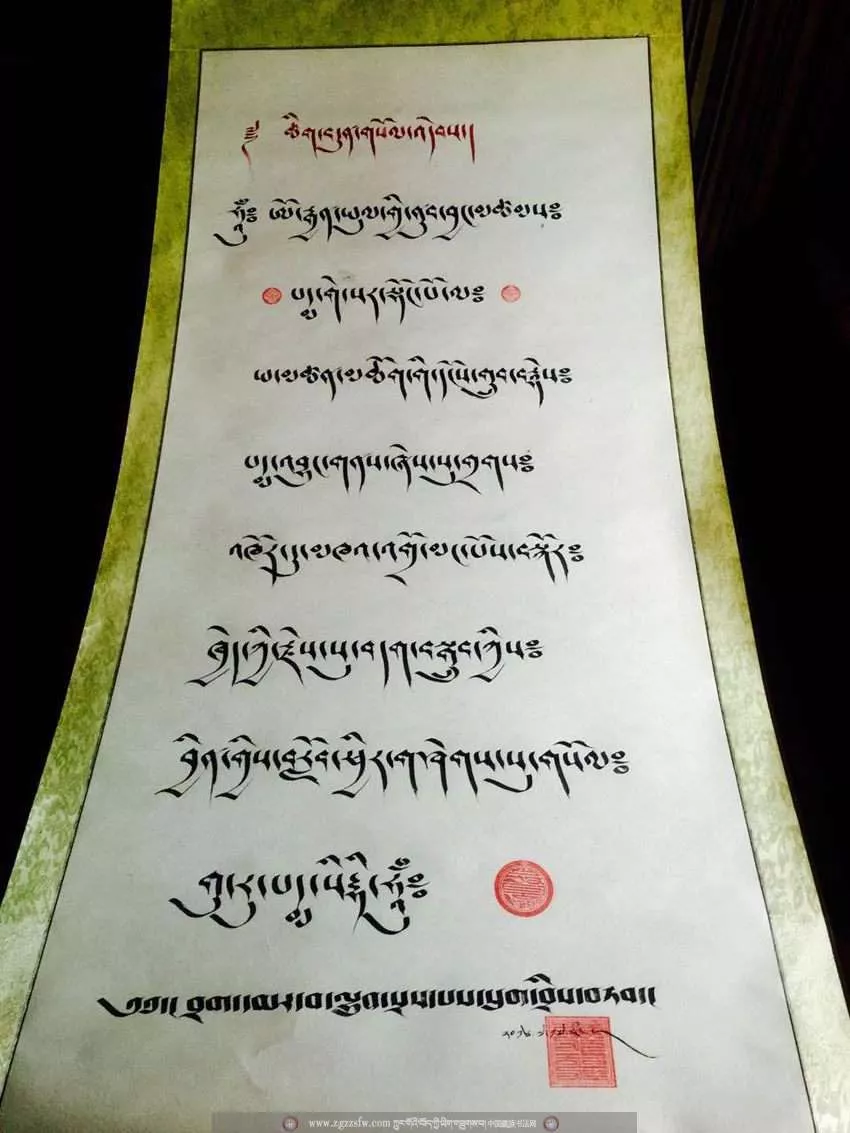 ༄༅། ཚིག་བདུན་གསོལ་འདེབས།།
ཧཱུྃ༔ ཨོ་རྒྱན་ཡུལ་གྱི་ནུབ་བྱང་མཚམས༔
པདྨ་གེ་སར་སྡོང་པོ་ལ༔
ཡ་མཚན་མཆོག་གི་དངོས་གྲུབ་བརྙེས༔
པདྨ་འབྱུང་གནས་ཞེས་སུ་གྲགས༔
འཁོར་དུ་མཁའ་འགྲོ་མང་པོས་བསྐོར༔
ཁྱེད་ཀྱི་རྗེས་སུ་བདག་བསྒྲུབ་ཀྱིས༔
བྱིན་གྱིས་བརླབ་ཕྱིར་གཤེགས་སུ་གསོལ༔
གུ་རུ་པདྨ་སིདྡྷི་ཧཱུྃ༔
www.zgzzsfw.com ཀྲུང་གོའི་བོད་ཀྱི་ཡིག་གཟུགས་དྲ་བ། 中国藏族书法网